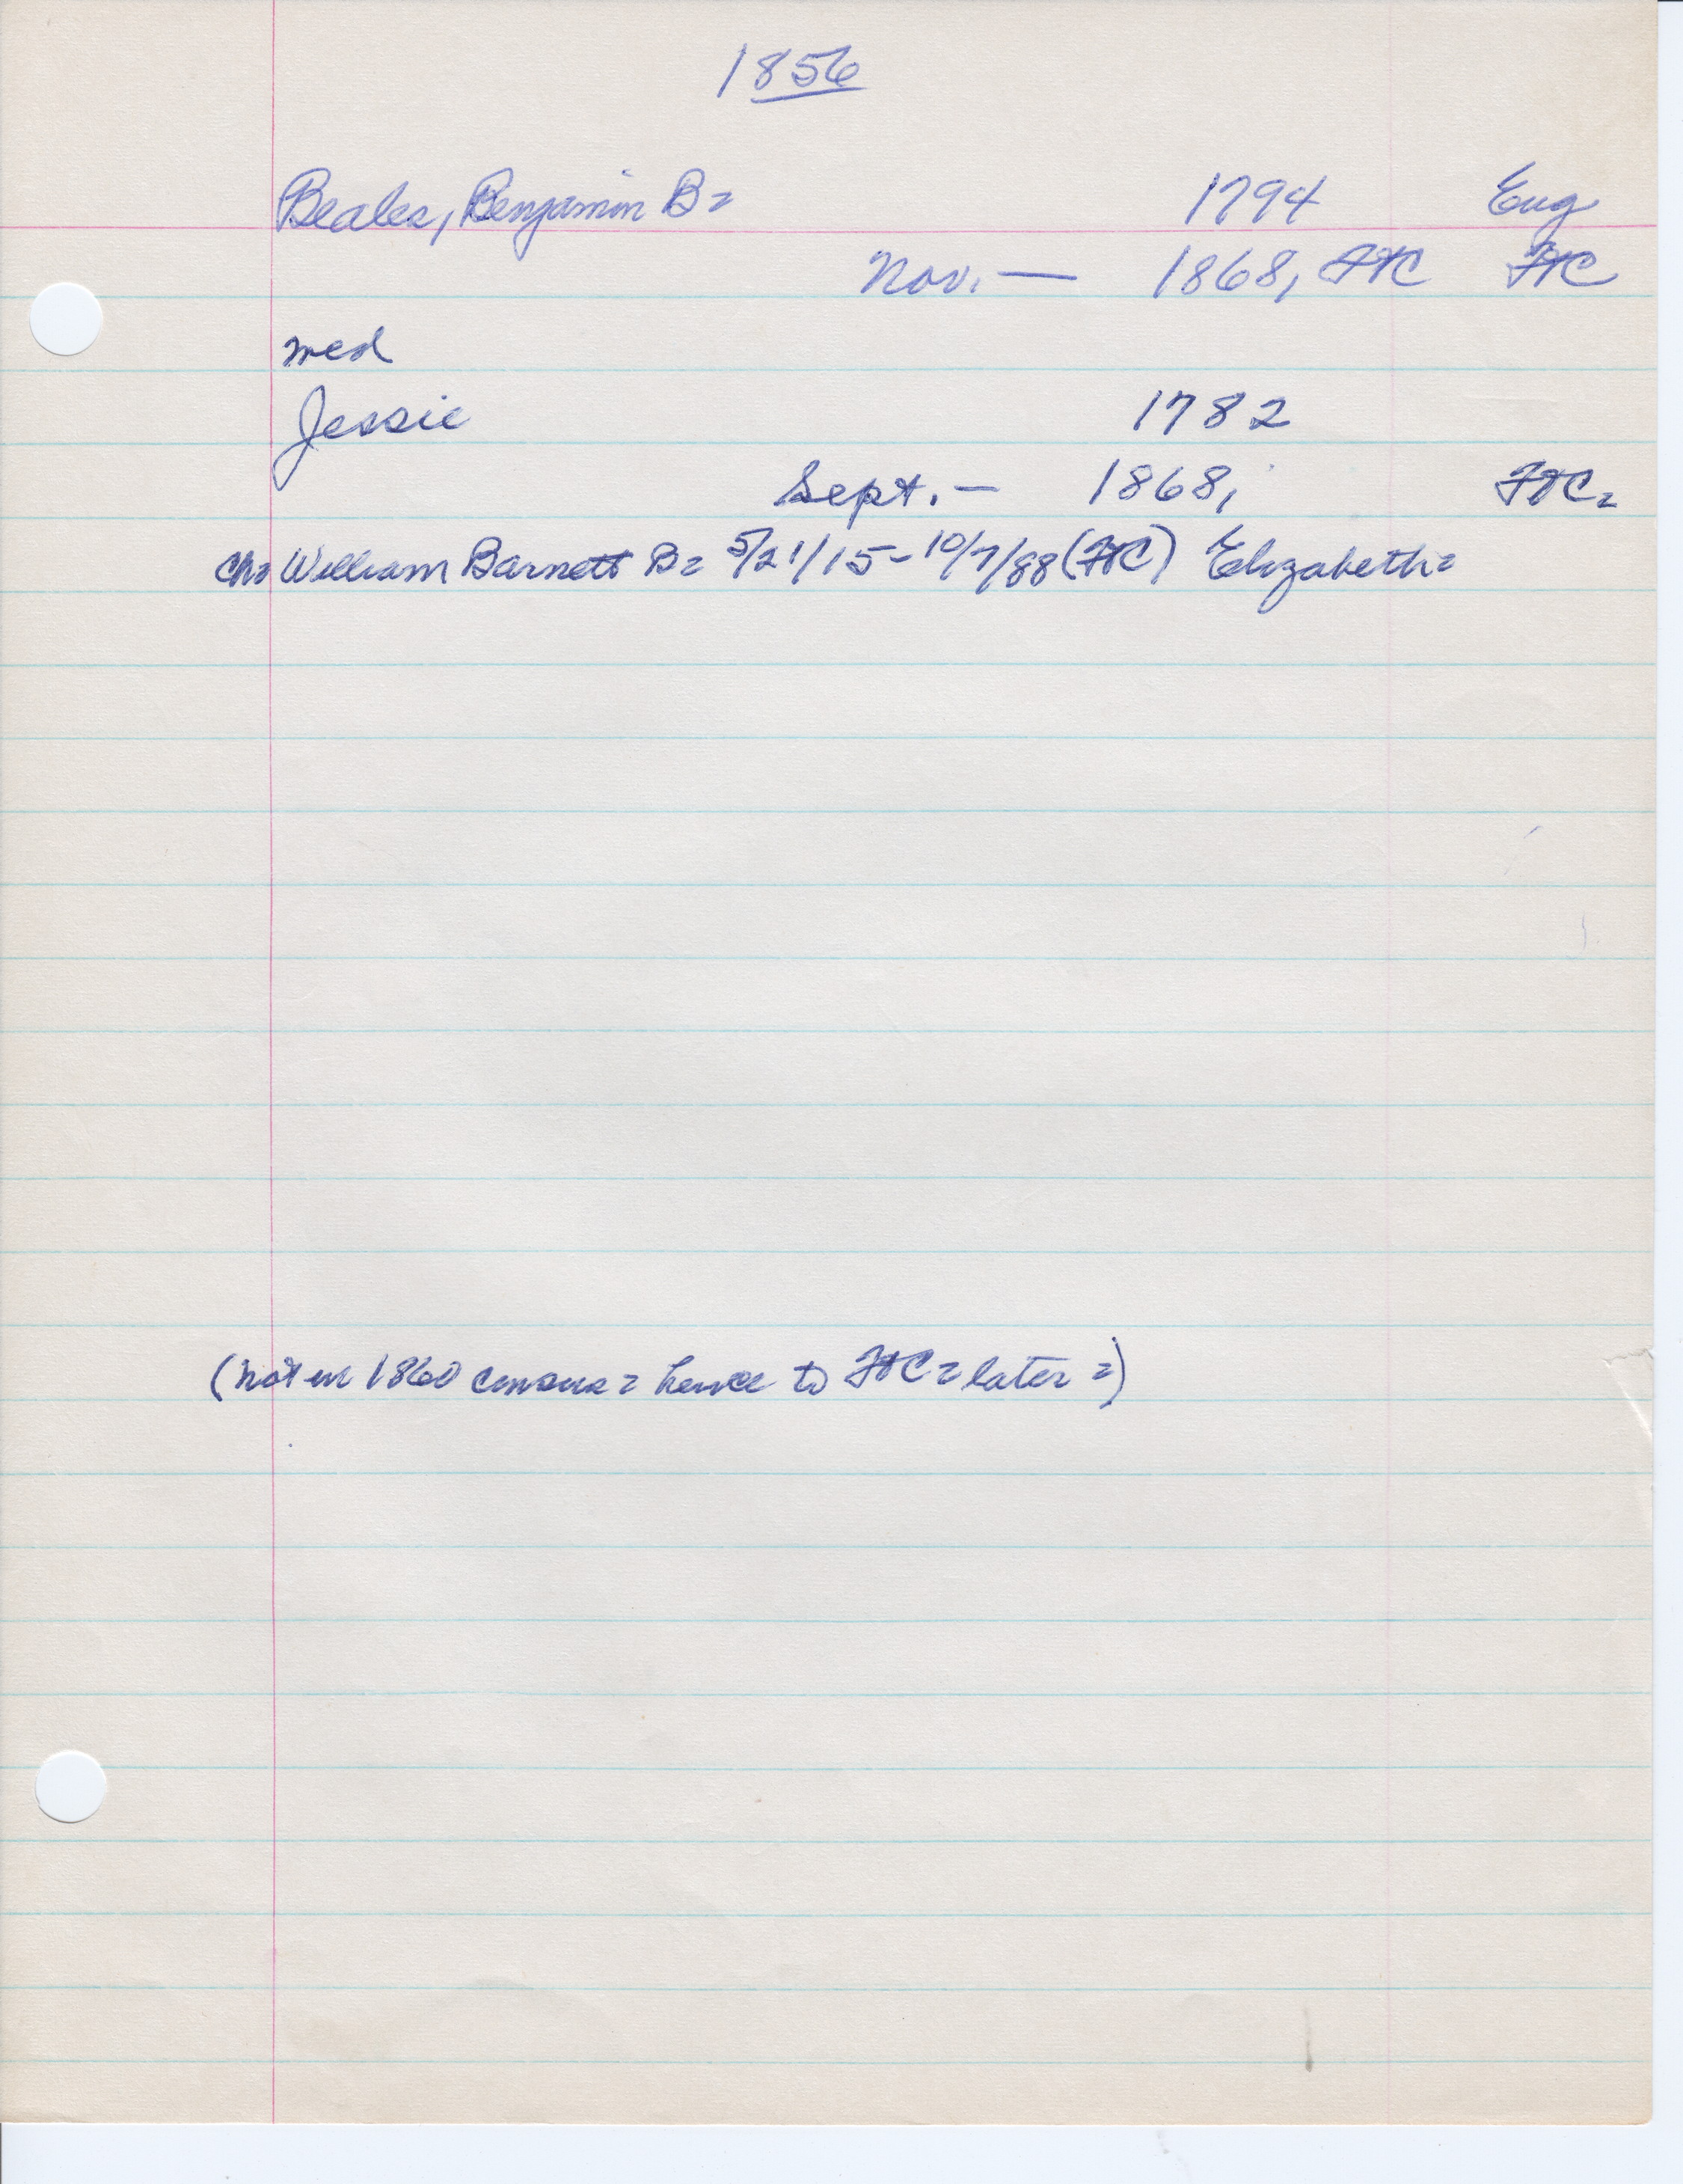 1856
Beales, Benjamin B= 1794 Eng
Nov. — 1868, FTC FTC
med
Jessie 1782
Sept. — 1868, FTC=
Ch= William Barnett B= 5/21/15 - 10/7/88 (FTC) Elizabeth=
(not in 1860 census = hence to FTC = later =)